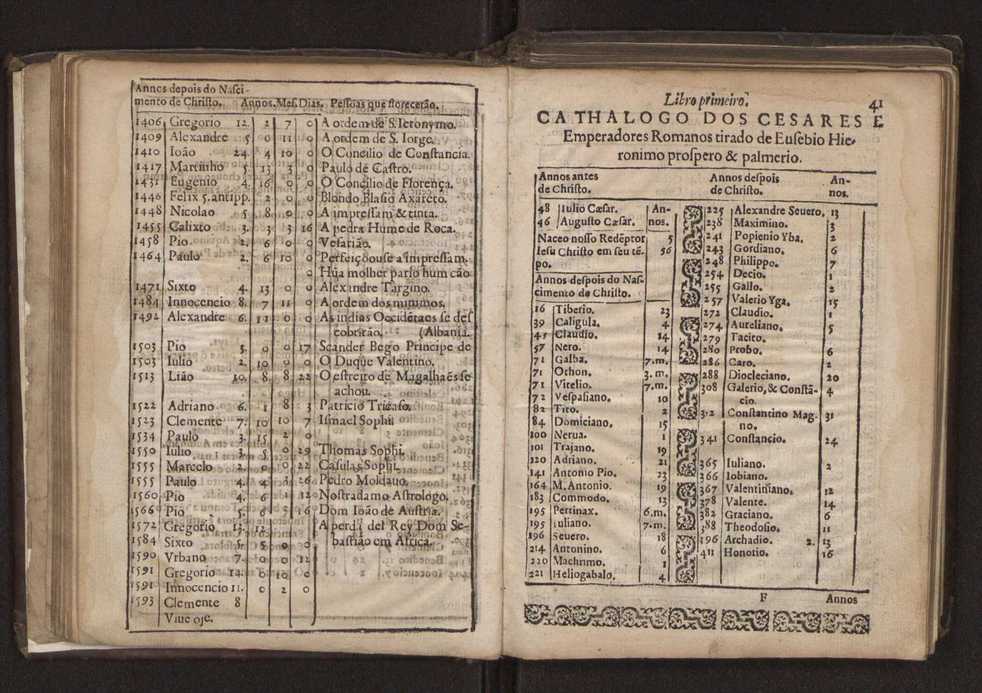 Annos depois do Nasci-
mento de Christo. Annos. Mes. Dias. Pessoas que florecerão.
1406 Gregorio 12. 2 7 0 A ordem de S. Ieronymo.
1409 Alexandre 5 0 11 0 A ordem de S. Iorge.
1410 Ioão 24. 4 10 0 O Concilio de Constancia.
1417 Martinho 5. 13 3 0 Paulo de Castro.
1431 Eugenio 4. 16 0 0 O Concilio de Florença.
1446 Felix 5. antipp. 2 0 0 Blondo Blasio Axareto.
1448 Nicolao 5 8 0 0 A impressam & tinta.
1455 Calixto 3. 3 3 16 A pedra Hume de Roca.
1458 Pio. 2. 6 0 0 Vesarião.
1464 Paulo 2. 6 10 0 Perfeiçõouse a impressam.
0 Hũa molher pario hum cão
1471 Sixto 4. 13 0 0 Alexandre Targino.
1484 Innocencio 8. 7 11 0 A ordem dos minimos.
1492 Alexandre 6. 11 0 0 As indias Occidẽtaes se des
cobrirão. (Albania.
1503 Pio 3. 0 0 17 Scander Bego Principe de
1503 Iulio 2. 10 0 0 O Duque Valentino.
1513 Lião 10. 8 8 22 O estreito de Magalhaẽs se
achou.
1522 Adriano 6. 1 8 3 Patricio Tricaso.
1523 Clemente 7. 10 10 7 Ismael Sophi.
1534 Paulo 3. 15 2 0
1550 Iulio 3. 5 0 29 Thomas Sophi.
1555 Marcelo 2. 0 0 22 Casulas Sophi.
1555 Paulo 4. 4 3 26 Pedro Moldauo.
1560 Pio 4. 6 1 12 Nostradamo Astrologo.
1566 Pio 5. 6 5 16 Dom Ioão de Austria.
1572 Gregorio 13. 12 A perda del Rey Dom Se-
1584 Sixto 5. 5 0 0 bastião em Africa.
1590 Vrbano 7. 0 0 12
1591 Gregorio 14. 0 10 0
1591 Innocencio 11. 0 2 0
1593 Clemente 8
Viue oje.
Libro primeiro. 41
CATHALOGO DOS CESARES E
Emperadores Romanos tirado de Eusebio Hie-
ronimo prospero & palmerio.
Annos antes
de Christo.
48 Iulio Cæsar. An-
46 Augusto Cæsar. nos.
Naceo nosso Redẽptor 5
Iesu Christo em seu tẽ- 56
po.
Annos despois do Nas-
cimento de Christo.
16 Tiberio. 23
39 Caligula. 4
41 Claudio. 14
57 Nero. 14
71 Galba. 7.m.
71 Othon. 3.m.
71 Vitelio. 7.m.
72 Vespasiano. 10
82 Tito. 2
84 Domiciano. 15
100 Nerua. 1
101 Trajano. 19
120 Adriano. 21
141 Antonio Pio. 23
164 M. Antonio. 19
183 Commodo. 13
195 Pertinax. 6.m.
195 Iuliano. 7.m.
196 Seuero. 18
214 Antonino. 6
220 Machrino. 1
221 Heliogabalo. 4
Annos despois An-
de Christo. nos.
225 Alexandre Seuero. 13
238 Maximino. 3
241 Popienio Yba. 2
243 Gordiano. 6
248 Philippo. 7
254 Decio. 1
255 Gallo. 2
257 Valerio Yga. 15
272 Claudio. 1
274 Aureliano. 5
279 Tacito.
280 Probo. 6
286 Caro. 2
288 Diocleciano. 20
308 Galerio, & Constã- 4
cio.
312 Constantino Mag- 31
no.
341 Constancio. 24
365 Iuliano. 2
366 Iobiano.
367 Valentiniano. 12
378 Valente. 14
382 Graciano. 6
388 Theodosio. 11
396 Archadio. 2. 13
411 Honotio. 16
F Annos